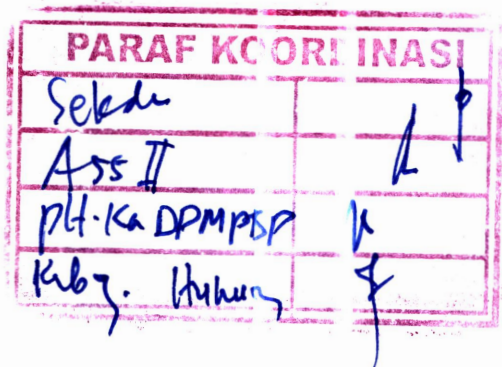 PARAF KOORDINASI
Sekda
Ass II
Plt. Ka DPMPTSP
Kabag. Hukum